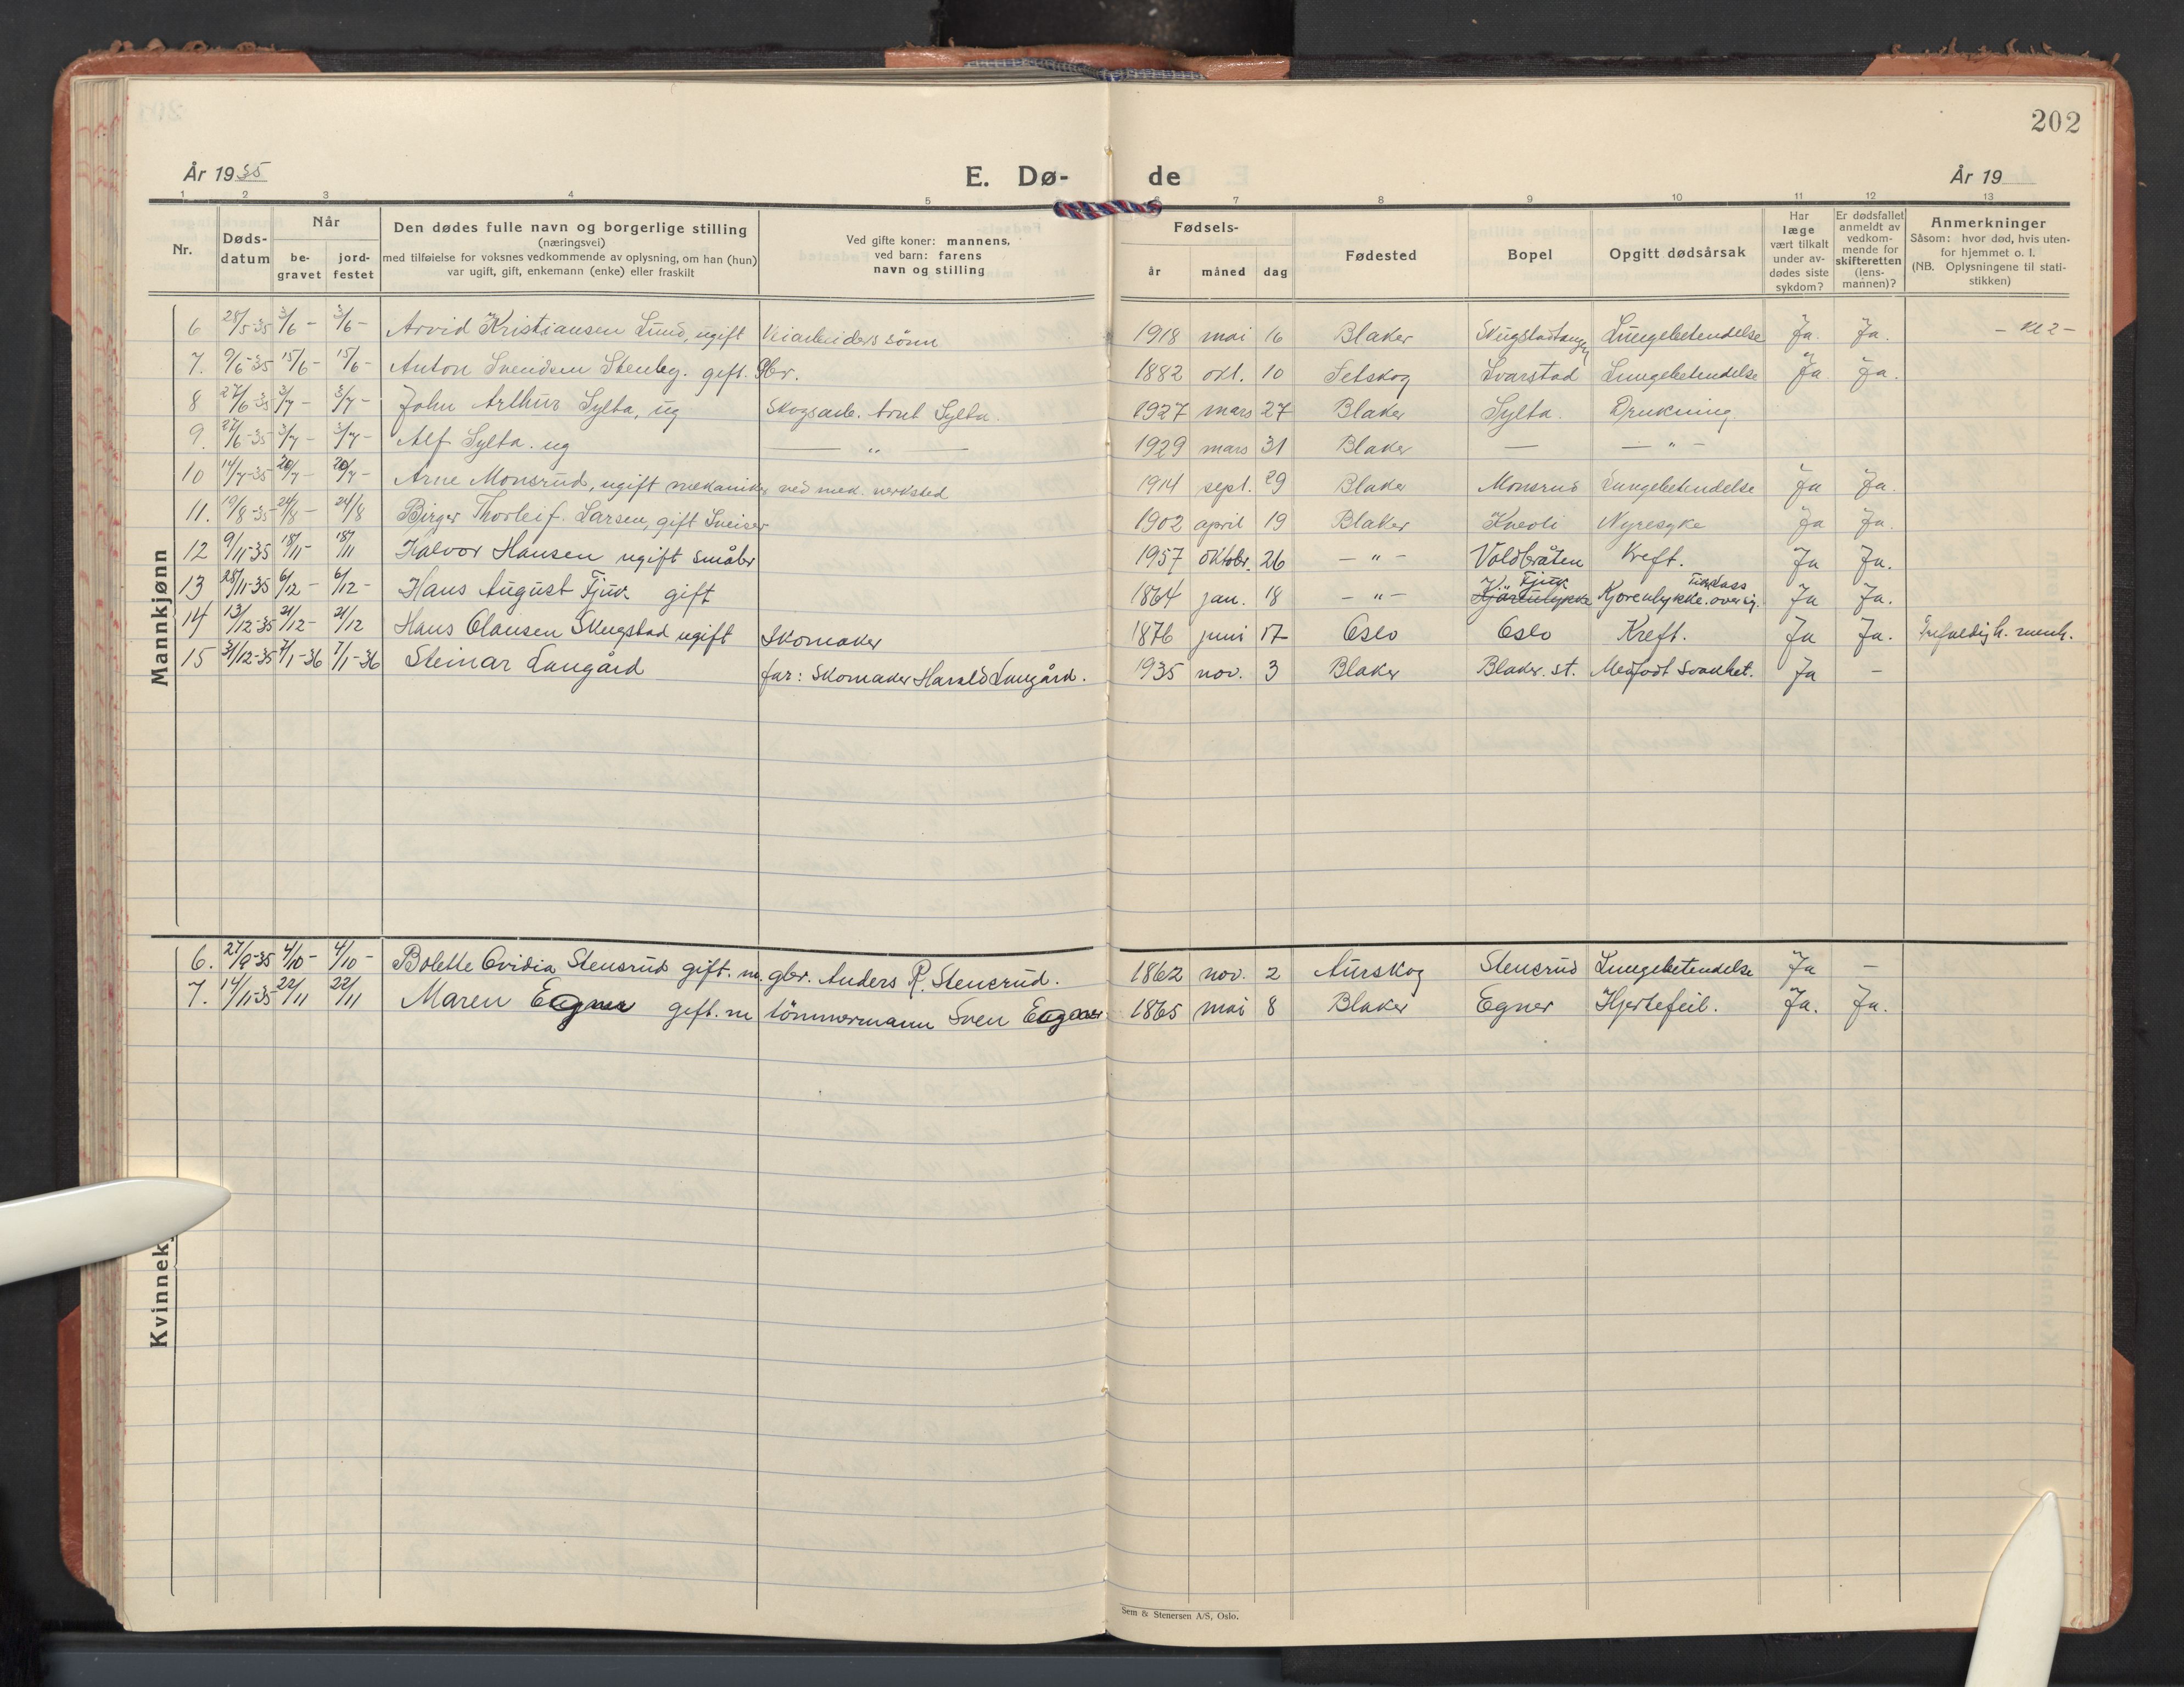 202
År 1935 E. Dø- de År 19
1 2 3 4 5 6 7 8 9 10 11 12 13
Nr.
Døds-
datum
Når
be-
gravet
jord-
festet
Den dødes fulle navn og borgerlige stilling
(næringsvei)
med tilføielse for voksnes vedkommende av oplysning, om han (hun)
var ugift, gift, enkemann (enke) eller fraskilt
Ved gifte koner: mannens,
ved barn: farens
navn og stilling
Fødsels-
år måned dag
Fødested
Bopel
Opgitt dødsårsak
Har
læge
vært tilkalt
under av-
dødes siste
sykdom?
Er dødsfallet
anmeldt av
vedkom-
mende for
skifteretten
(lens-
mannen)?
Anmerkninger
Såsom: hvor død, hvis uten-
for hjemmet o. l.
(NB. Oplysningene til stati-
stikken)
Mannkjønn
6 28/5-35 3/6 - 3/6 - Arvid Kristiansen Lund, ugift Veiarbeiders sønn 1918 mai 16 Blaker Skugstadtangen Lungebetendelse Ja. Ja.
7. 9/6-35 15/6 - 15/6 - Anton Svendsen Stenby. gift. Gbr. 1882 okt. 10 Setskog Svarstad Lungebetendelse Ja Ja.
8 27/6-35 3/7 - 3/7 - John Arthur Sylta, ug Skogsarb. Sylta. 1927 mars 27 Blaker Sylta. Drukning
9. 27/6-35 3/7 - 3/7 - Alf Sylta. ug — " — 1929 mars 31 Blaker — — " —
10 14/7-35 20/7 - 20/7 - Arne Monsrud, ugift mekaniker ved mek. verksted 1914 sept. 29 Blaker Monsrud Lungebetendelse Ja Ja.
11. 19/8-35 24/8 - 24/8 Birger Thorleif Larsen, gift Sveiser 1902 april 19 Blaker Kneoli Nyresyke Ja Ja.
12 9/11-35 18/11- 18/11 Halvor Hansen ugift småbr 1957 oktobr. 26 — " — Voldbråten Kreft. Ja Ja.
13 28/11-35 6/12 - 6/12 - Hans August Fjuk gift 1864 jan. 18 — " — Fjuk Ja Ja.
14 13/12-35 21/12- 21/12 Hans Olausen Skugstad ugift Skomaker 1876 juni 17 Oslo Oslo Kreft. Ja Ja.
15 31/12-35 7/1-36 7/1-36 Steinar Langård far: Skomaker Harald Langård. 1935 nov. 3 Blaker Blaker. st. Medfødt svakhet. Ja -
Kvinnek
6. 27/9-35 4/10 - 4/10 - Bolette Ovidia Stensrud gift. m. gbr. Anders R. Stensrud. 1862 nov. 2 Aurskog Stensrud Lungebetendelse Ja -
7. 14/11-35 22/11 22/11 Maren Egner gift. m tømmermann Sven Egner 1865 mai 8 Blaker Egner Hjertefeil. Ja. Ja.
Sem & Stenersen A/S, Oslo.